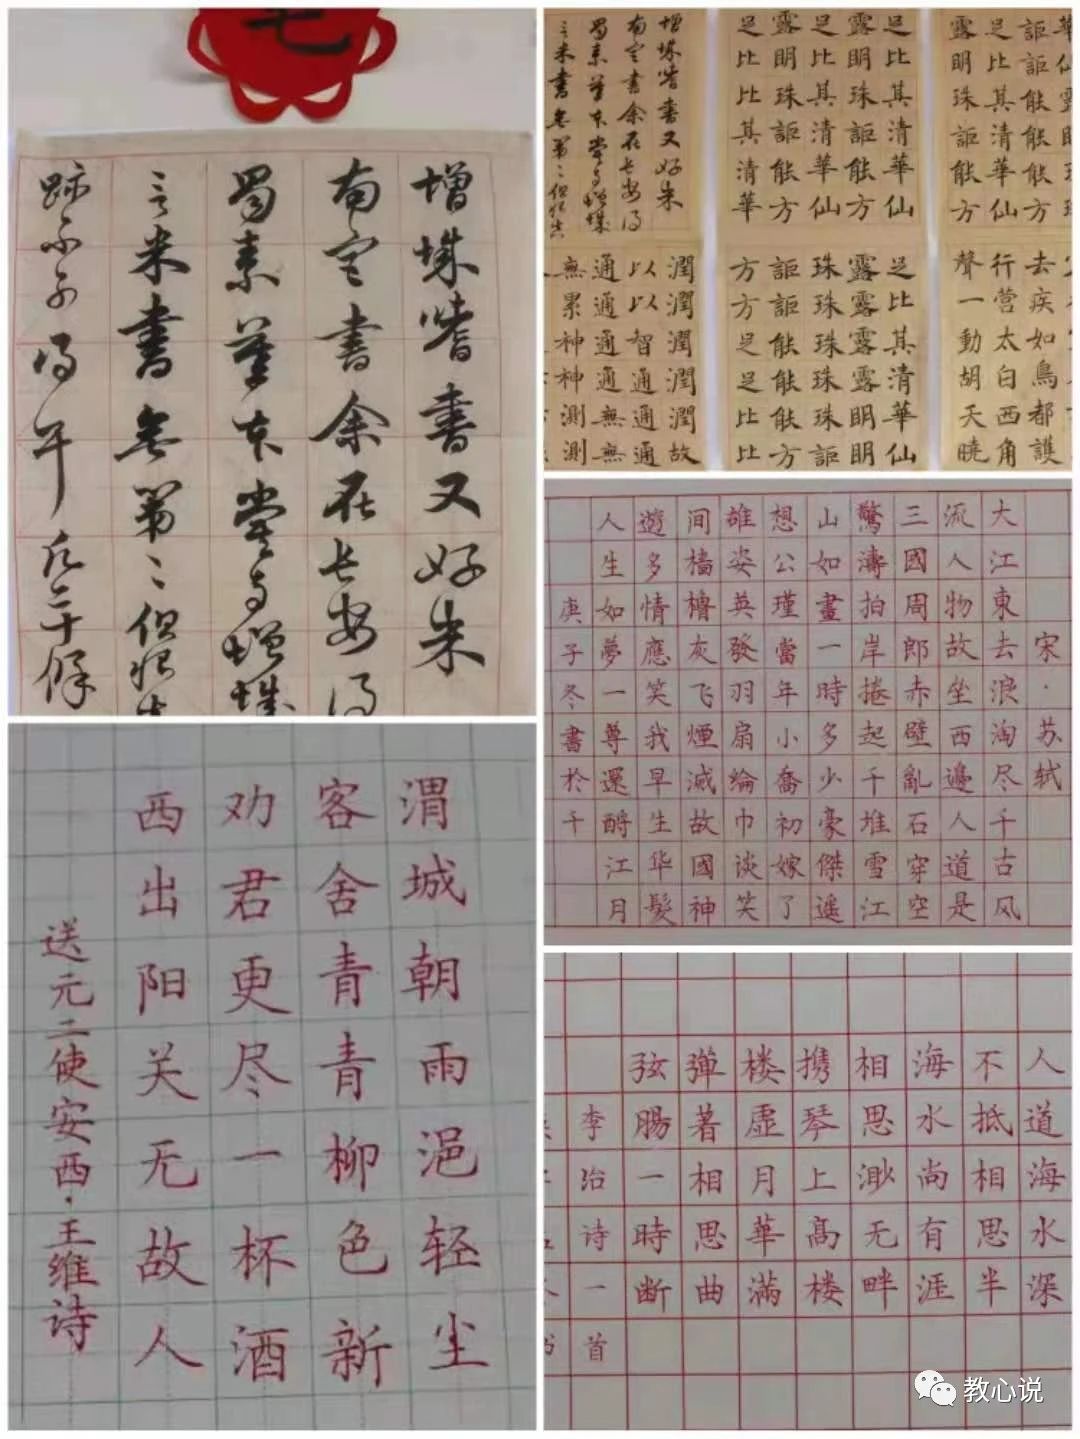 增城嗜書又好米
南宫書余在长安得
蜀素摹本嘗与增城
言米書無第二但恨真
跡不可得耳凡二十餘
增城嗜書又好米
南宫書余在长安得
蜀素摹本嘗与增城
言米書無第二但恨真
足比其清華仙
露明珠詎能方
足比其清華仙
露明珠詎能方
足比比其清華
詎詎能能能方
足比其清華仙
露明珠詎能方
潤潤潤潤潤故
以以智通通通
通通通通無無
無累神神測測
足比其清華仙
露露露露明明
珠珠珠珠珠詎
詎詎能能能方
方方足足比比
去疾如鳥都護
行營太白西角
聲一動胡天曉
宋·苏轼
大江東去浪淘尽千古风
流人物故坐西邊人道是
三國周郎赤壁亂石穿空
驚濤拍岸捲起千堆雪江
山如畫一時多少豪傑遥
想公瑾當年小喬初嫁了
雄姿英發羽扇綸巾谈笑
间樯櫓灰飞煙滅故國神
遊多情應笑我早生华髮
人生如夢一尊還酹江月
庚子冬書於于
渭城朝雨浥轻尘
客舍青青柳色新
劝君更尽一杯酒
西出阳关无故人
送元二使安西·王维诗
人道海水深
不抵相思半
海水尚有涯
相思渺无畔
携琴上高楼
楼虚月華滿
弹著相思曲
弦腸一時断
李治诗一首
教心说